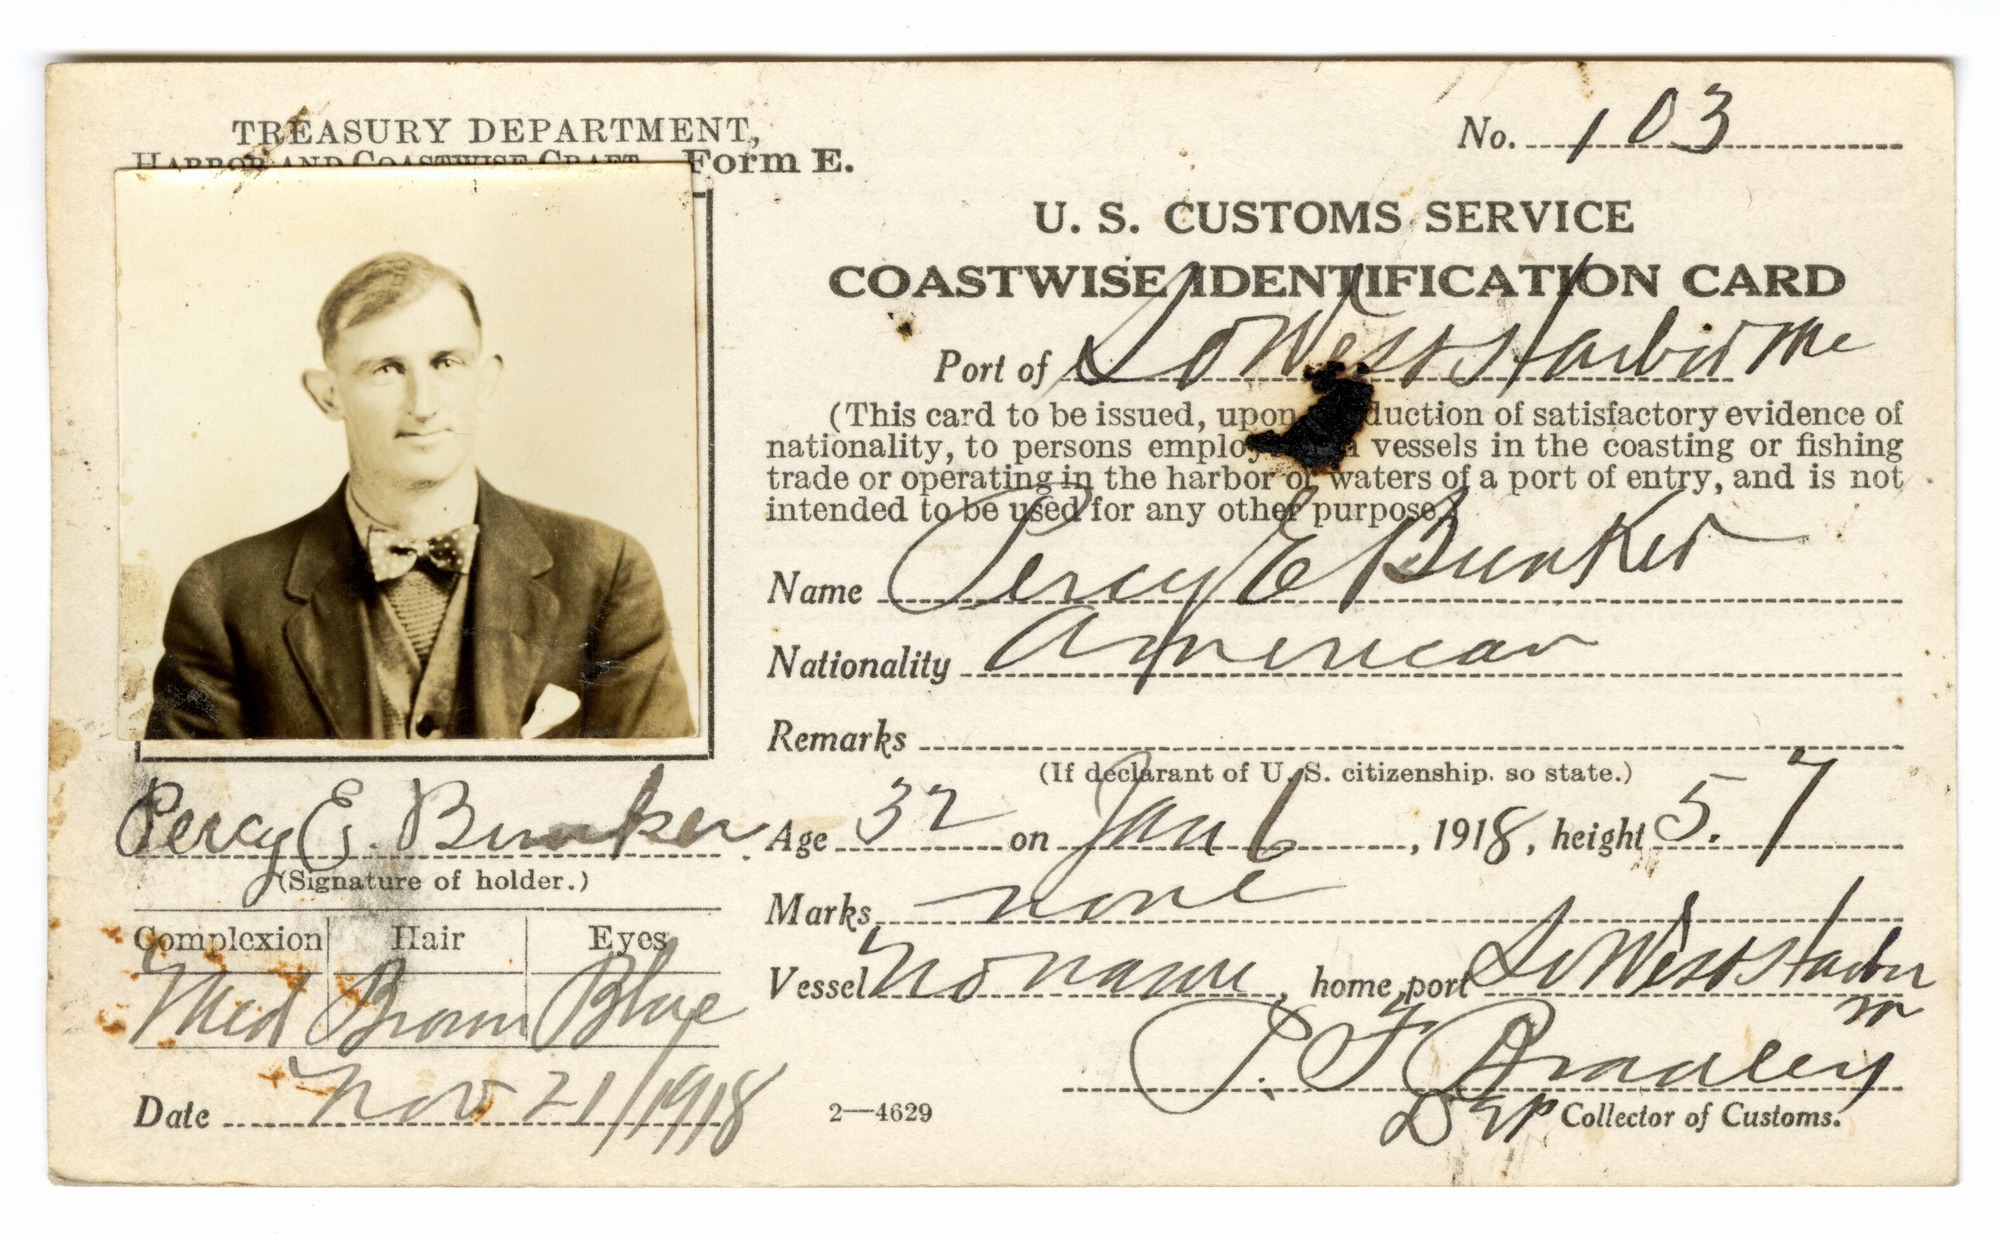 TREASURY DEPARTMENT,
HARBOR AND COASTWISE CRAFT. Form E.
No. 103
U. S. CUSTOMS SERVICE
COASTWISE IDENTIFICATION CARD
Port of So West Harbor Me
(This card to be issued, upon duction of satisfactory evidence of
nationality, to persons employ vessels in the coasting or fishing
trade or operating in the harbor or waters of a port of entry, and is not
intended to be used for any other purpose.)
Name Percy E Bunker
Nationality American
Remarks
(If declarant of U. S. citizenship, so state.)
Age 32 on Jan 6, 1918, height 5.7
Marks none
Vessel No name, home port So West Harbor
m
P. F. Bradley
Dep Collector of Customs.
Percy E. Bunker
(Signature of holder.)
Complexion Hair Eyes
Med Brown Blue
Date Nov 21/1918
2—4629